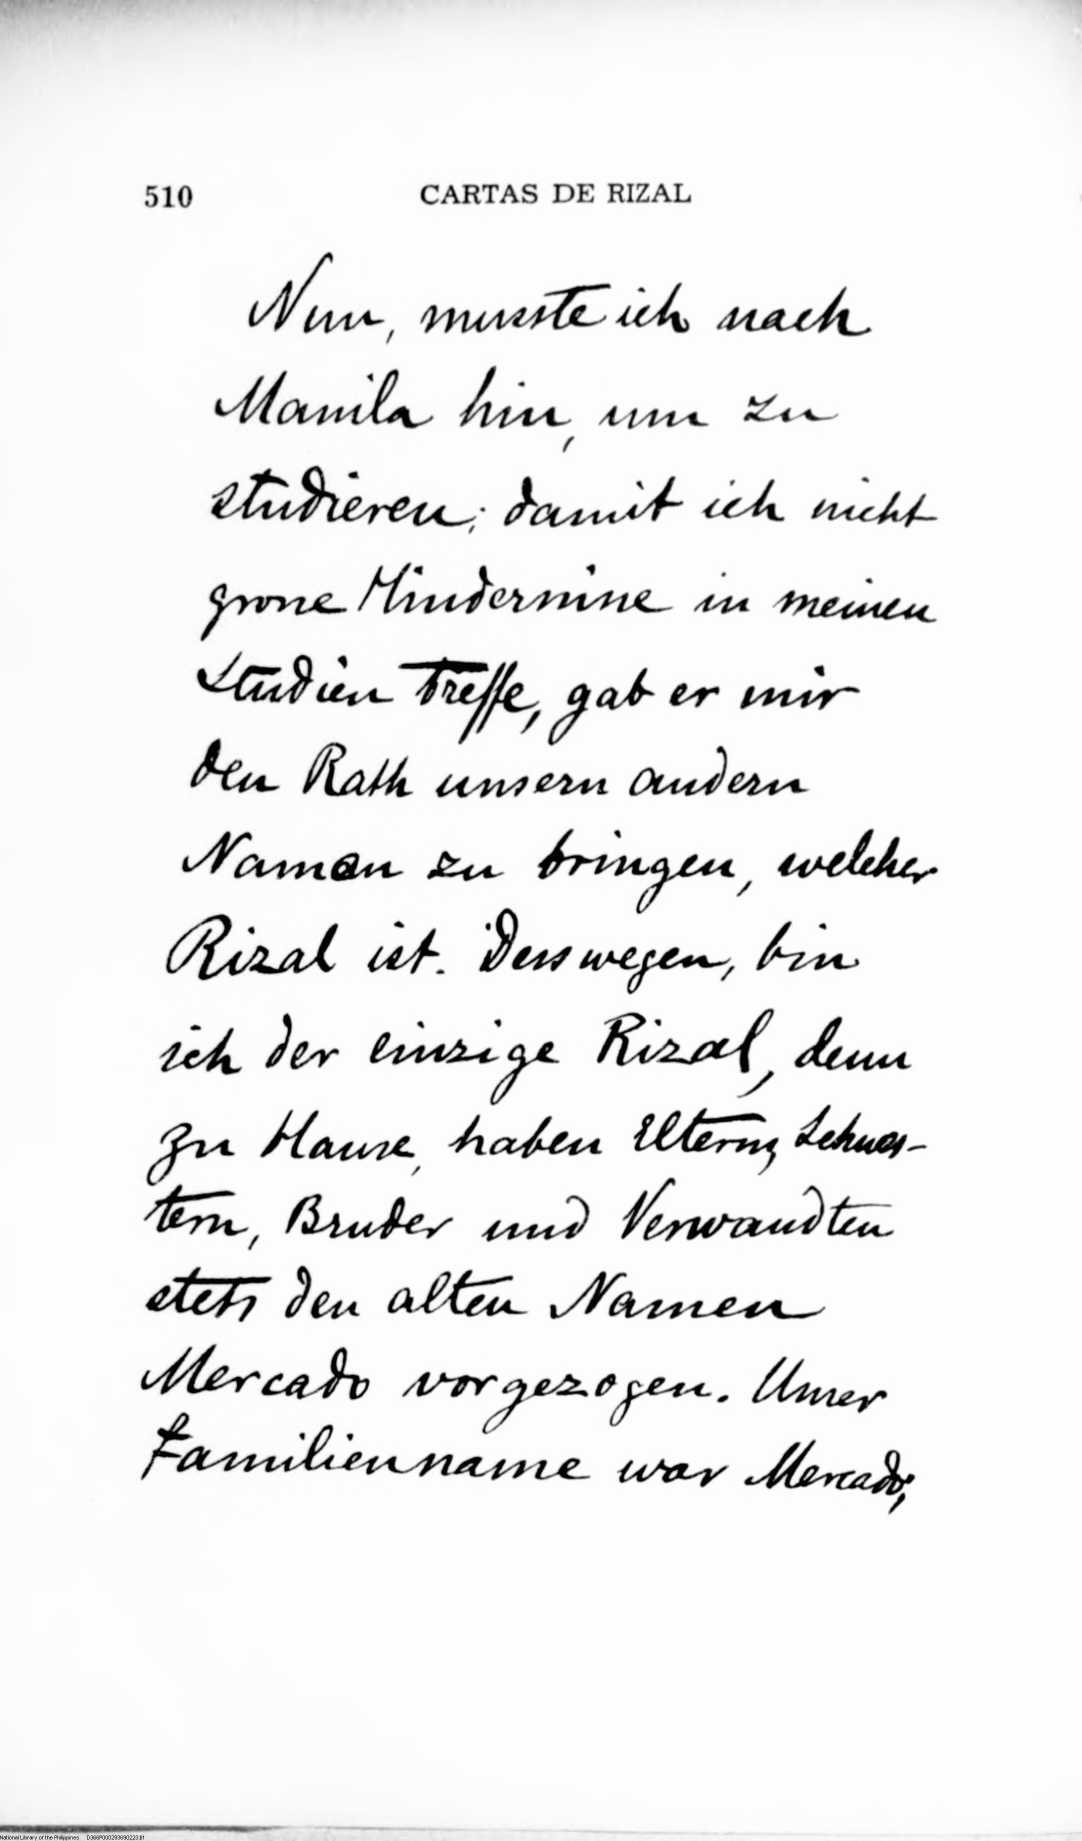 510 CARTAS DE RIZAL
Nun, musste ich nach
Manila hin, um zu
studieren; damit ich nicht
grosse Hindernisse in meinen
Studien treffe, gab er mir
den Rath unsern andern
Namen zu bringen, welcher
Rizal ist. Desswegen, bin
ich der einzige Rizal, denn
zu Hause, haben Eltern, Schwes-
tern, Bruder und Verwandten
stets den alten Namen
Mercado vorgezogen. Unser
Familienname war Mercado;
National Library of the Philippines